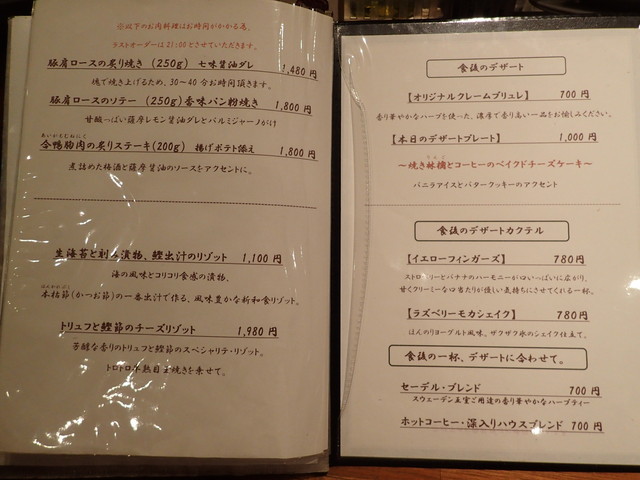 ※以下のお肉料理はお時間がかかる為、
ラストオーダーは21:00とさせていただきます。
豚肩ロースの炙り焼き(250g) 七味醤油ダレ 1,480円
塊で焼き上げるため、30〜40分お時間頂きます。
豚肩ロースのソテー (250g)香味パン粉焼き 1,800円
甘酸っぱい薩摩レモン醤油ダレとパルミジャーノがけ
あいがもむねにく
合鴨胸肉の炙りステーキ(200g) 揚げポテト添え 1,800円
煮詰めた梅酒と薩摩醤油のソースをアクセントに。
生海苔と刻み漬物、鰹出汁のリゾット 1,100円
海の風味とコリコリ食感の漬物、
本枯節(かつお節)の一番出汁で作る、風味豊かな新和食リゾット。
トリュフと鰹節のチーズリゾット 1,980円
芳醇な香りのトリュフと鰹節のスペシャリテ・リゾット。
トロトロ半熟目玉焼きを乗せて。
食後のデザート
【オリジナルクレームブリュレ】 700円
香り華やかなハーブを使った、濃厚で香り高い一品をお愉しみください。
【本日のデザートプレート】 1,000円
りんご
〜焼き林檎とコーヒーのベイクドチーズケーキ〜
バニラアイスとバタークッキーのアクセント
食後のデザートカクテル
【イエローフィンガーズ】 780円
ストロベリーとバナナのハーモニーが口いっぱいに広がり、
甘くクリーミーな口当たりが優しい気持ちにさせてくれる一杯。
【ラズベリーモカシェイク】 780円
ほんのりヨーグルト風味、ザクザク氷のシェイク仕立て。
食後の一杯、デザートに合わせて。
セーデル・ブレンド 700円
スウェーデン王室ご用達の香り華やかなハーブティー
ホットコーヒー・深入りハウスブレンド 700円